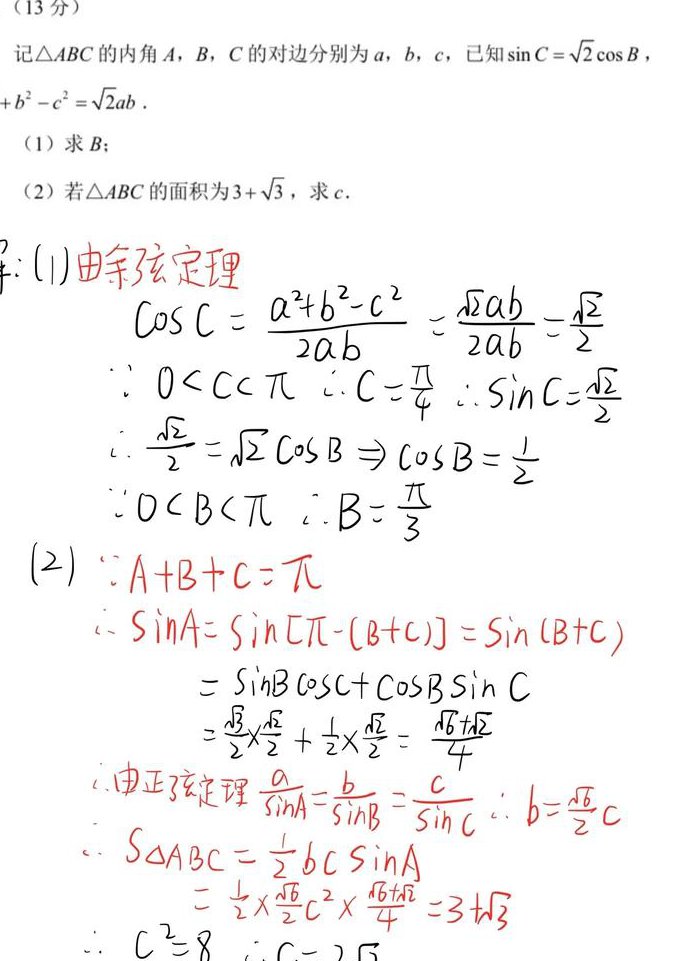 (13 分)
记△ABC 的内角 A，B，C 的对边分别为 a，b，c，已知 sin C = √2 cos B，
+ b² − c² = √2ab .
(1) 求 B;
(2) 若△ABC 的面积为 3+√3，求 c.
(1) 由余弦定理
cos C = (a²+b²−c²)/(2ab) = (√2ab)/(2ab) = √2/2
∵ 0<C<π ∴ C=π/4 ∴ sin C=√2/2
∴ √2/2 = √2 cos B ⇒ cos B = 1/2
∵ 0<B<π ∴ B=π/3
(2) ∵ A+B+C=π
∴ sinA = sin[π−(B+C)] = sin(B+C)
= sinB cosC + cosB sin C
= √3/2 × √2/2 + 1/2 × √2/2 = (√6+√2)/4
∴ 由正弦定理 a/sinA = b/sinB = c/sinC ∴ b=√6/2 c
∴ S△ABC = 1/2 bc sinA
= 1/2 × √6/2 c² × (√6+√2)/4 = 3+√3
∴ c²=8 ∴ c=2√